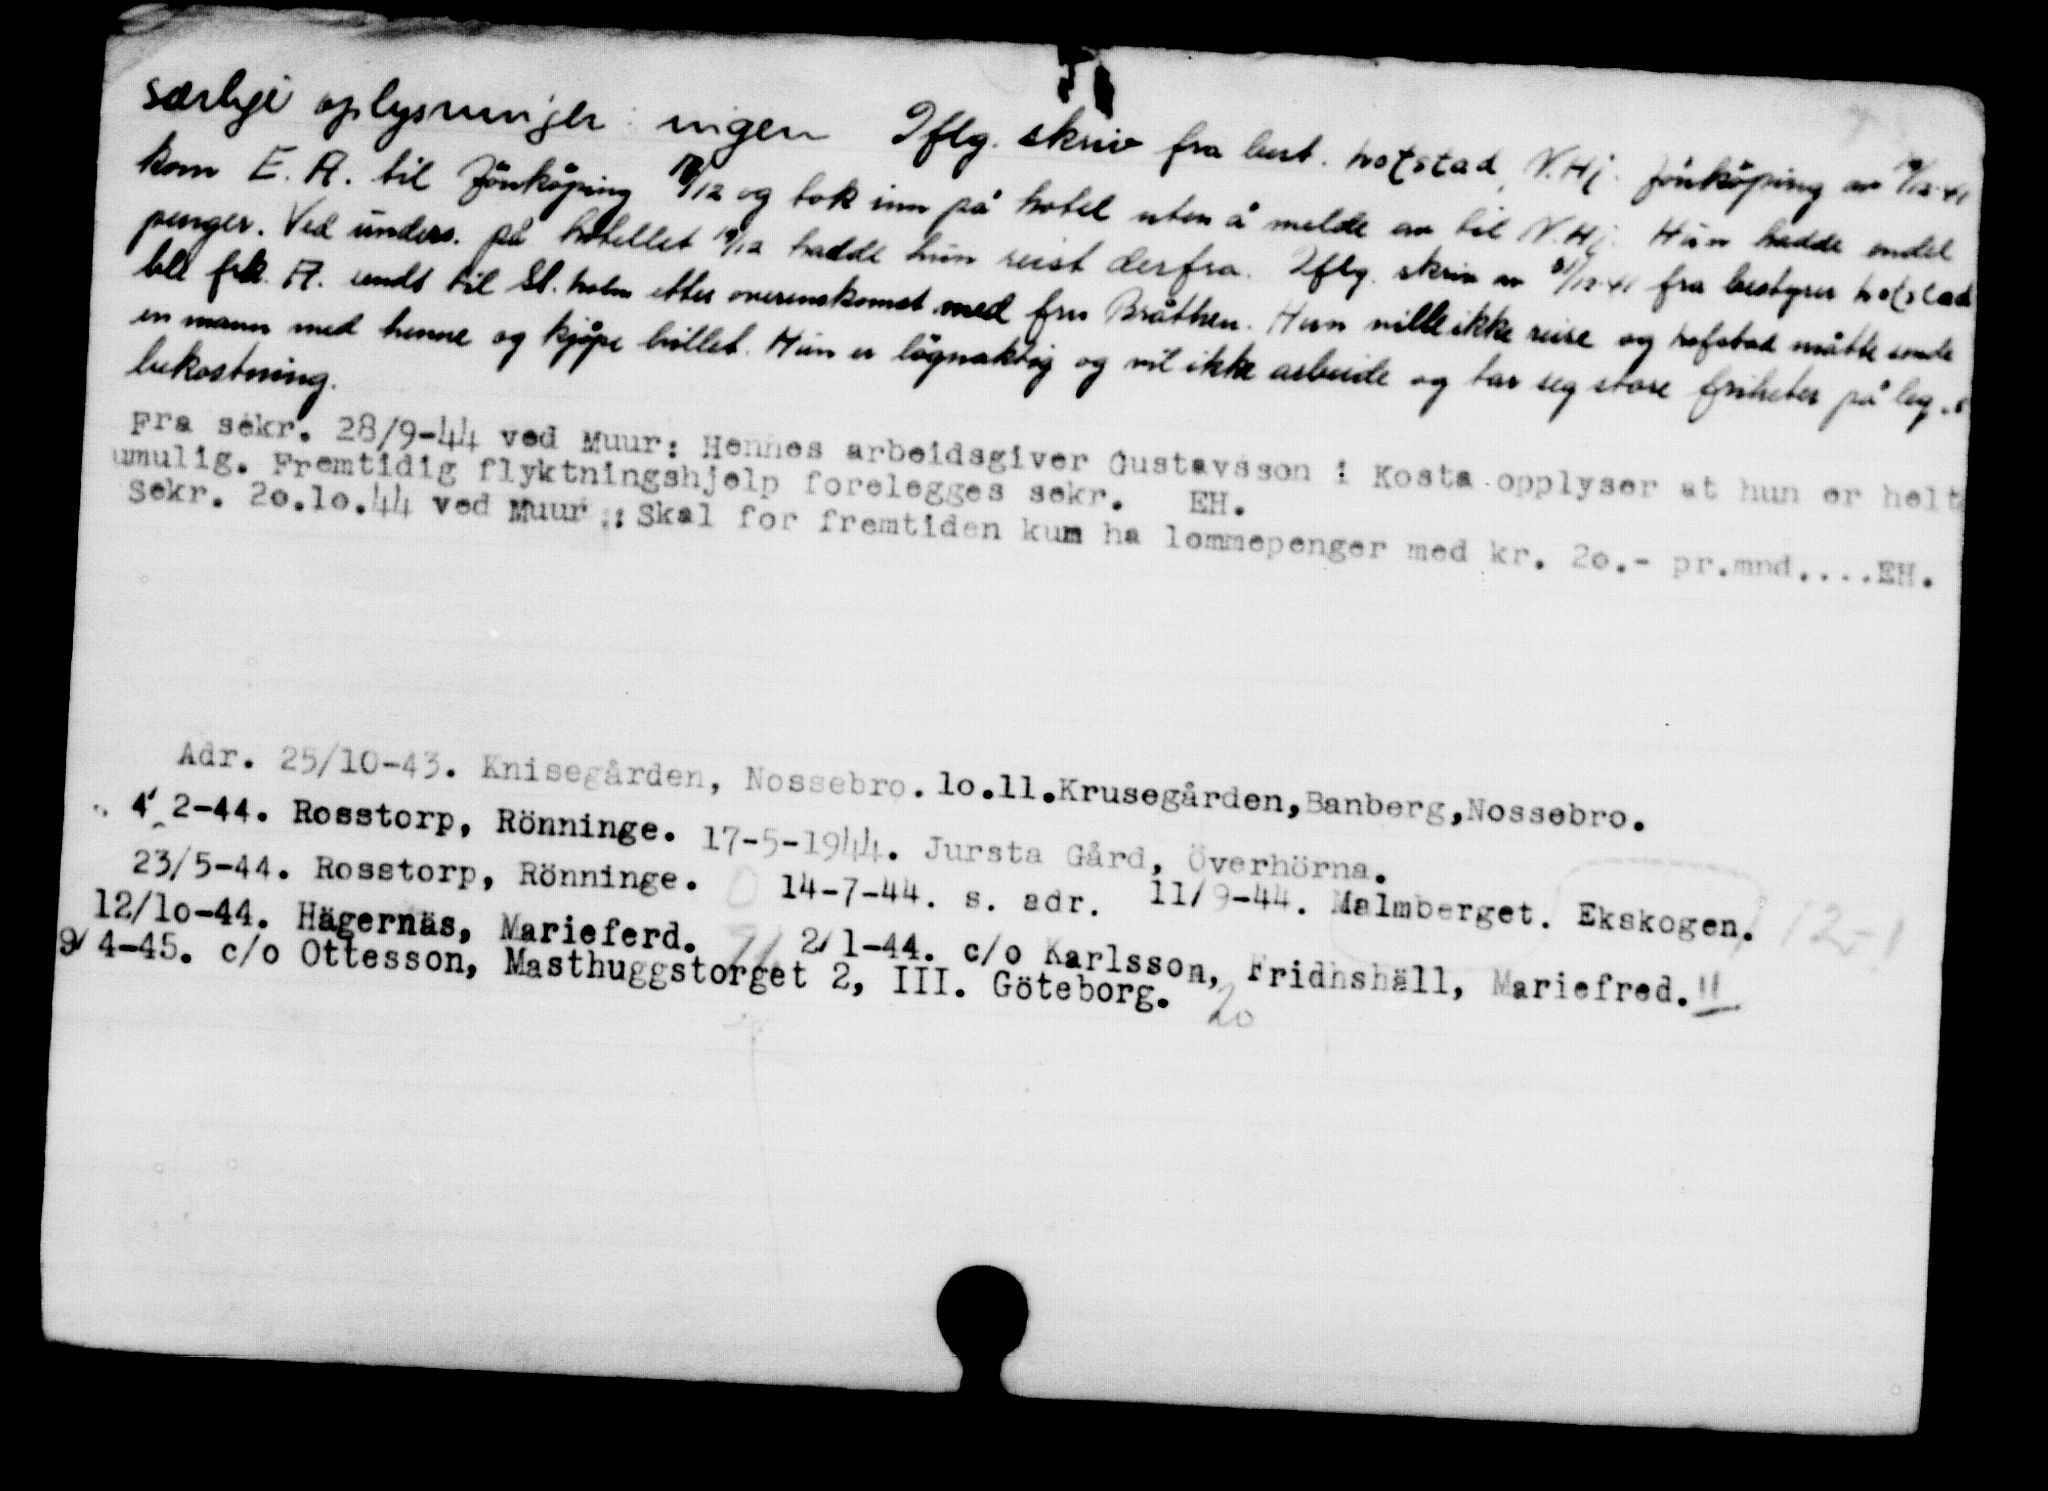 særlige oplysninger: ingen Iflg. skriv fra best. Hofstad, N.Hj. Jönköping av 19/12-41
kom E. A. til Jönköping 18/12 og tok inn på hotel uten å melde av til N.Hj. Hun hadde endel
penger. Ved unders. på hotellet 19/12 hadde hun reist derfra. Iflg. skriv av 31/12-41 fra bestyrer Hofstad
ble frk. A. sendt til St.holm etter overenskomst med fru Bråthen. Hun ville ikke reise og Hofstad måtte sende
en mann med henne og kjøpe billet. Hun er lögnaktig og vil ikke arbeide og tar seg store friheter på leg.s
bekostning.
Fra sekr. 28/9-44 ved Muur: Hennes arbeidsgiver Gustavsson i Kosta opplyser at hun er helt
umulig. Fremtidig flyktningshjelp forelegges sekr. EH.
Sekr. 2o.1o.44 ved Muur : Skal for fremtiden kum ha lommepenger med kr. 2o.- pr.mnd....EH.
Adr. 25/10-43. Knisegården, Nossebro. 1o.11.Krusegården,Banberg,Nossebro.
4/2-44. Rosstorp, Rönninge. 17-5-1944. Jursta Gård, Överhörna.
23/5-44. Rosstorp, Rönninge. 14-7-44. s. adr. 11/9-44. Malmberget. Ekskogen.
12/1o-44. Hägernäs, Marieferd. 2/1-44. c/o Karlsson, Fridhshäll, Mariefred.
9/4-45. c/o Ottesson, Masthuggstorget 2, III. Göteborg.
20